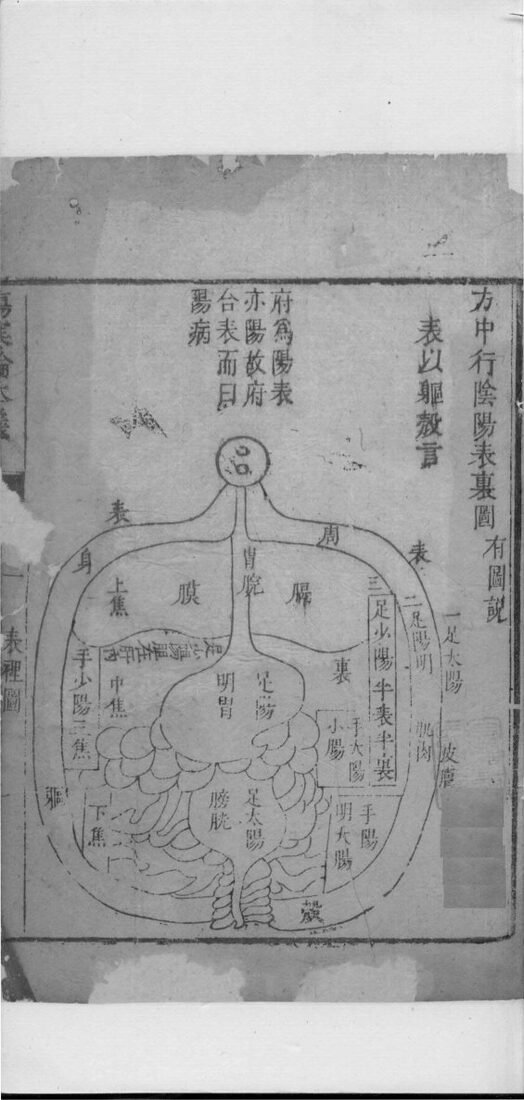 方中行陰陽表裏圖
有圖說
表以軀殼言
府爲陽表
亦陽故府
合表而曰
陽病
一足太陽
皮膚
表
二足陽明
肌肉
周
三
足少陽半表半裏
膈
裏
手太陽
小腸
手陽
明大腸
殼
胃脘
足陽
明胃
足太陽
膀胱
膜
上焦
中焦
下焦
手少陽三焦
表
身
軀
表裡圖